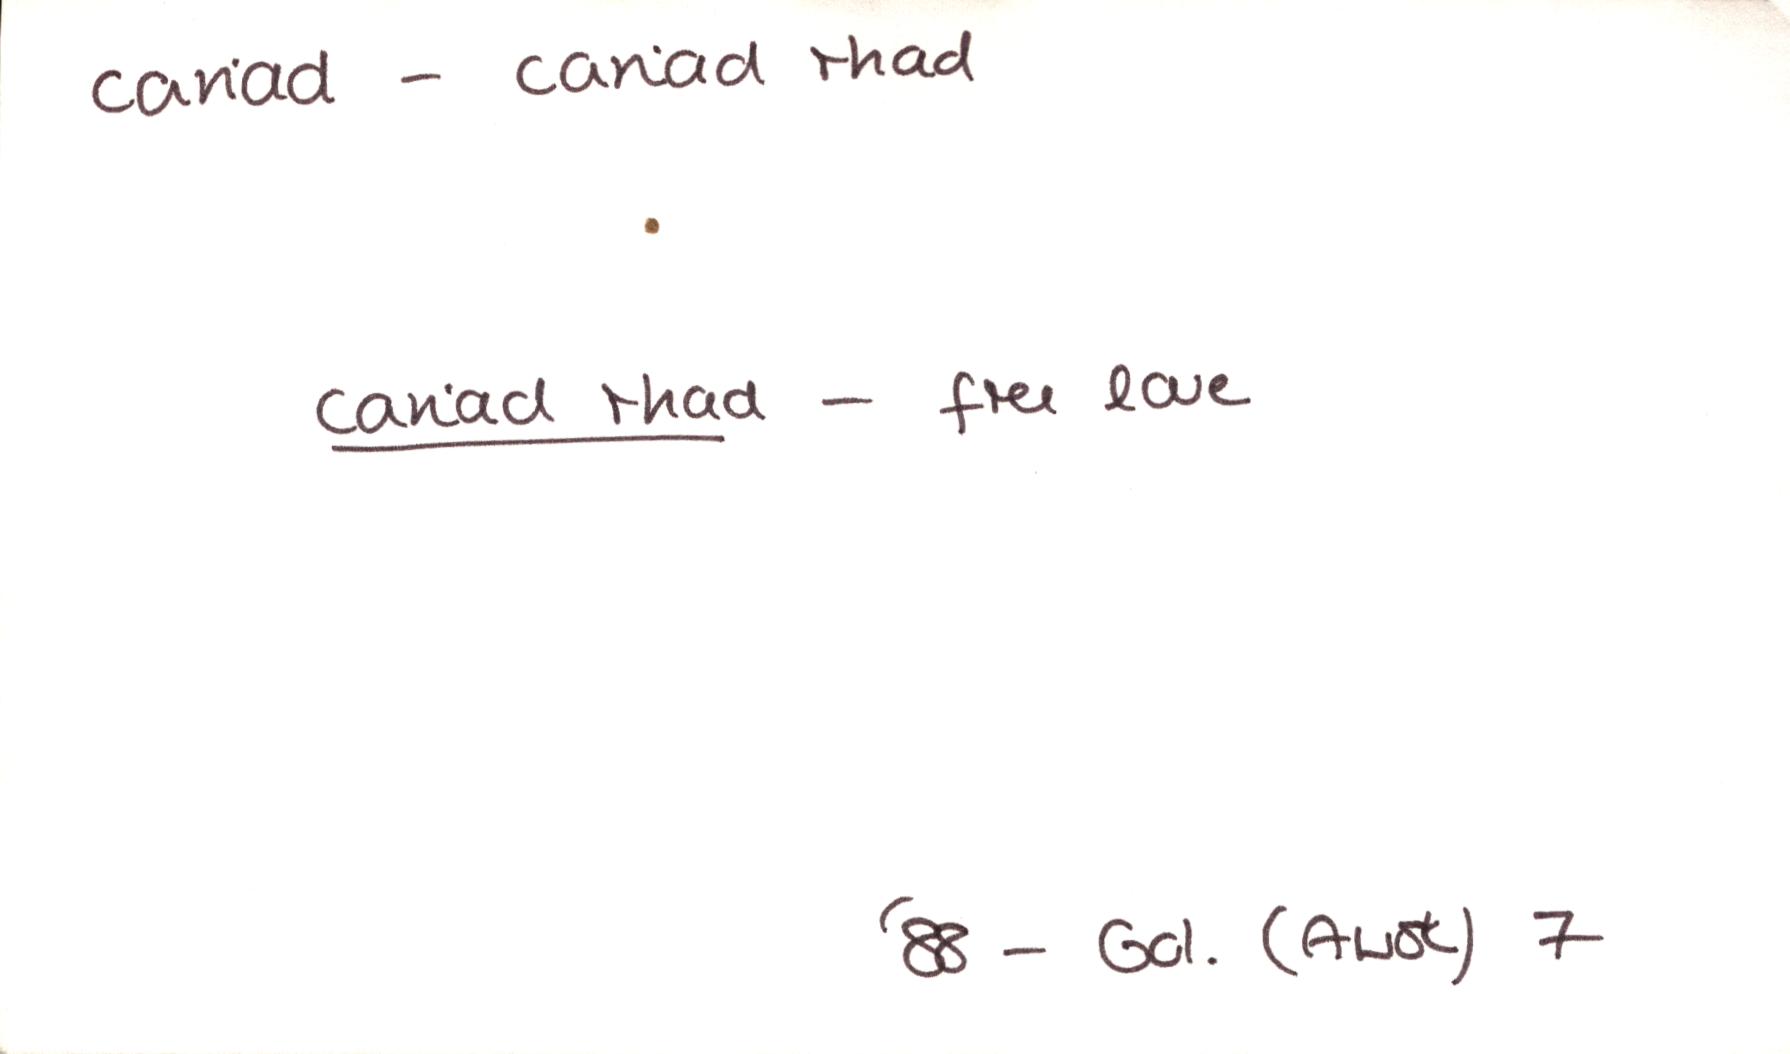 cariad - cariad rhad
cariad rhad - free love
'88 - Gol. (Awst) 7